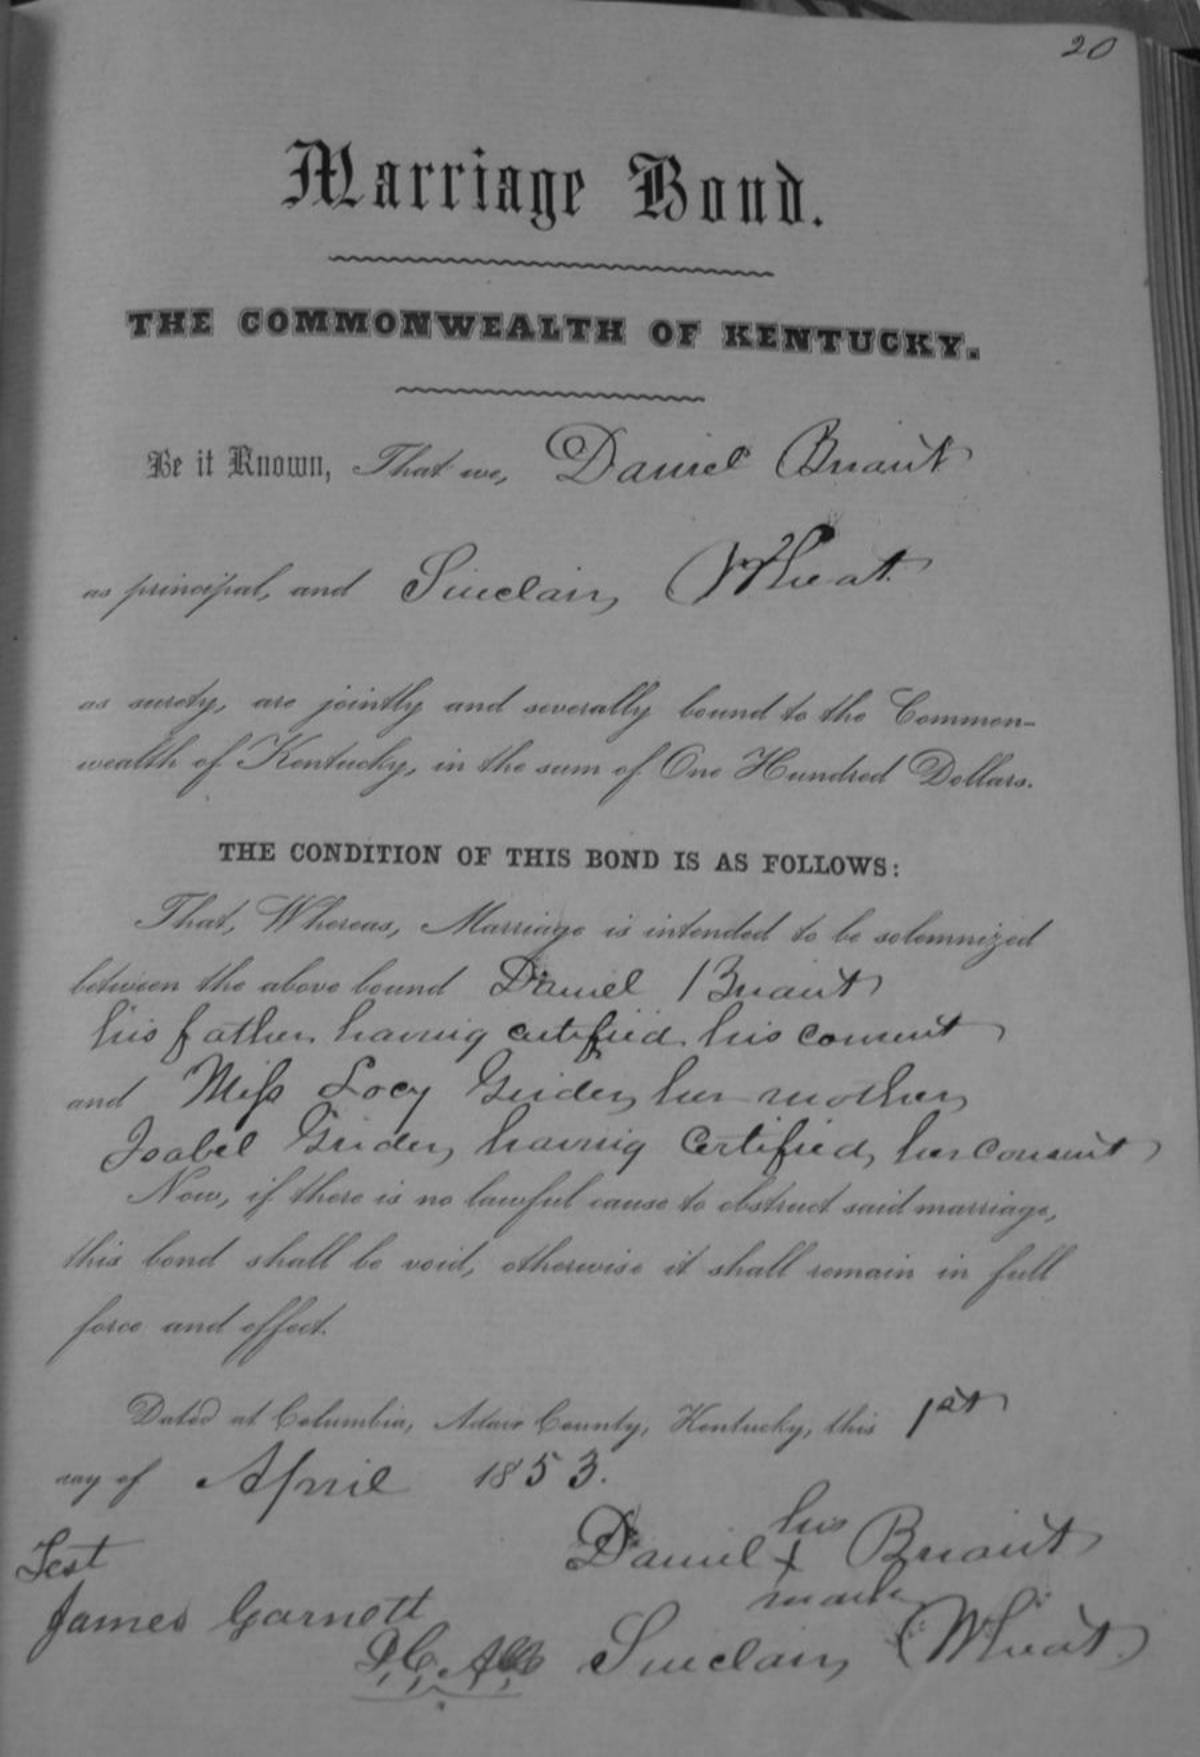 20
Marriage Bond.
THE COMMONWEALTH OF KENTUCKY.
Be it Known, That we, Daniel Briant
as principal, and Sinclair Wheat
as surety, are jointly and severally bound to the Common-
wealth of Kentucky, in the sum of One Hundred Dollars.
THE CONDITION OF THIS BOND IS AS FOLLOWS:
That, Whereas, Marriage is intended to be solemnized
between the above bound Daniel Briant
his father having certified his consent
and Miss Locy Grider, her mother,
Isabel Grider, having Certified, her consent
Now, if there is no lawful cause to obstruct said marriage,
this bond shall be void, otherwise it shall remain in full
force and effect.
Dated at Columbia, Adair County, Kentucky, this 1st
day of April 1853.
his
Test Daniel X Briant
mark
James Garnett
Sinclair Wheat